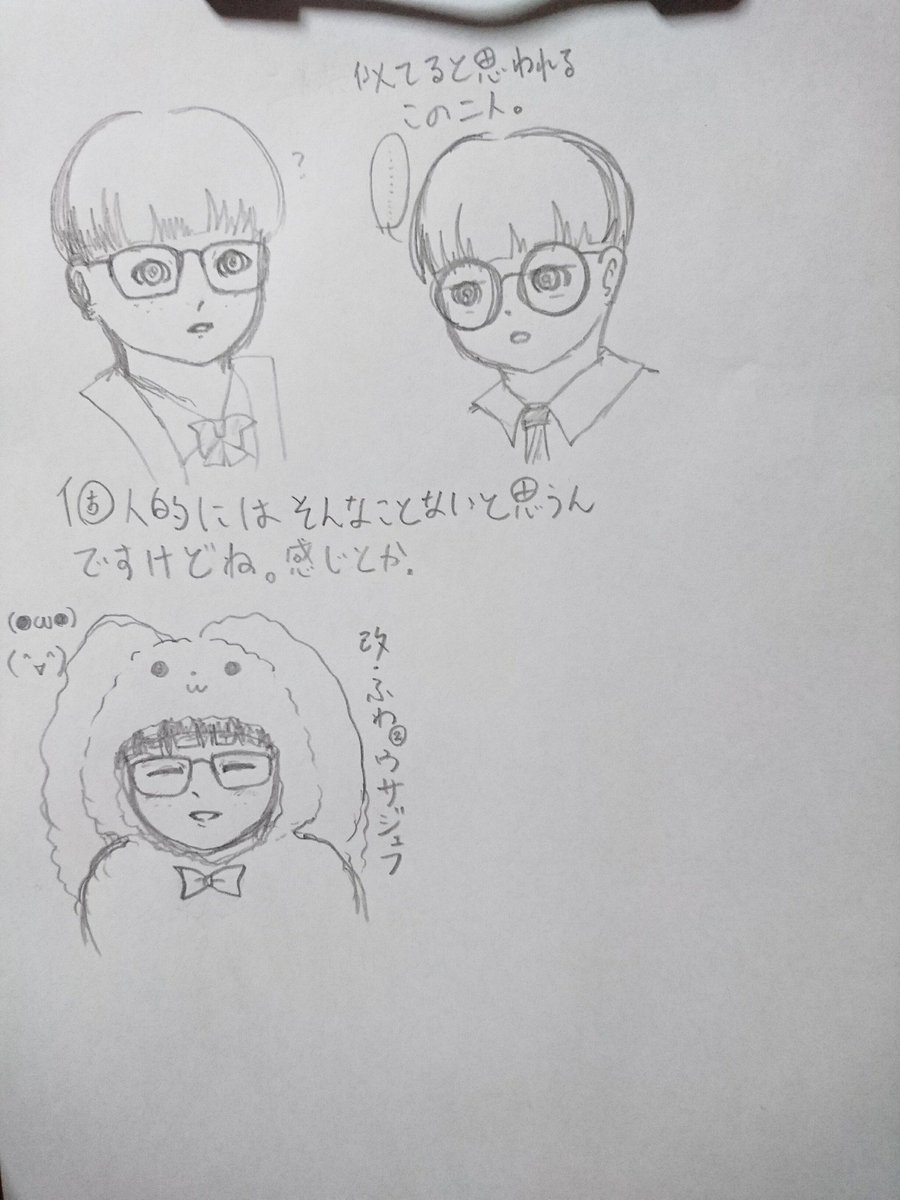 似てると思われる
この二人。
?
………
個人的にはそんなことないと思うん
ですけどね。感じとか.
(●ω●)
(^▽^)
改・ふわ②ウサジュフ